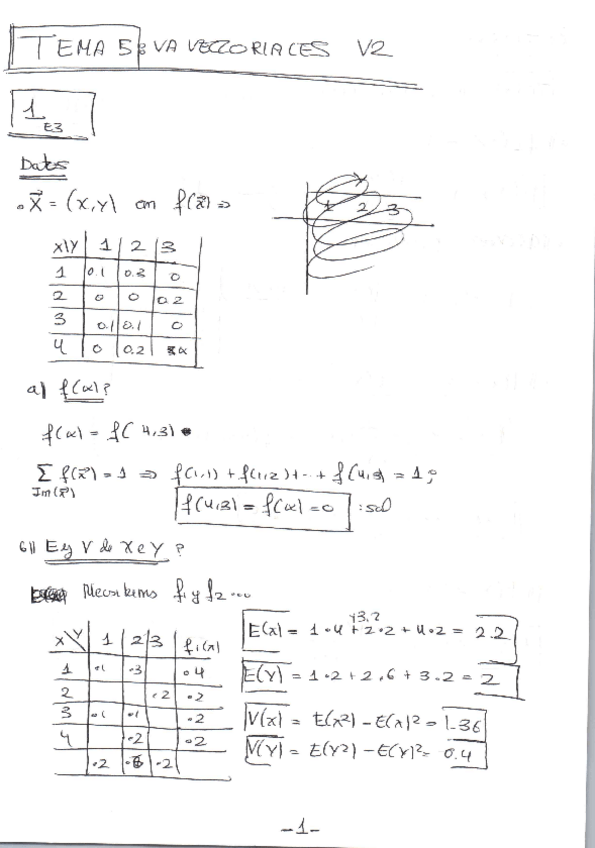 TEMA 5: VA VECTORIALES V2
1
E3
Datos
X = (X,Y) con f(x) ⇒
Y
1 2 3
X\Y 1 2 3
1 0.1 0.3 0
2 0 0 0.2
3 0.1 0.1 0
4 0 0.2 α
a) f(α)?
f(α) = f(4,3)
∑ f(x) = 1 ⇒ f(1,1) + f(1,2) + ... + f(4,3) = 1;
Im(x)
f(4,3) = f(α) = 0 : sol
b) E y V de X e Y?
Necesitamos f1 y f2 ...
X\Y 1 2 3 f1(x)
1 .1 .3 .4
2 .2 .2
3 .1 .1 .2
4 .2 .2
.2 .6 .2
+3.2
E(x) = 1·4 + 2·2 + 4·2 = 2.2
E(Y) = 1·2 + 2·6 + 3·2 = 2
V(x) = E(x²) - E(x)² = 1.36
V(Y) = E(Y²) - E(Y)² = 0.4
-1-